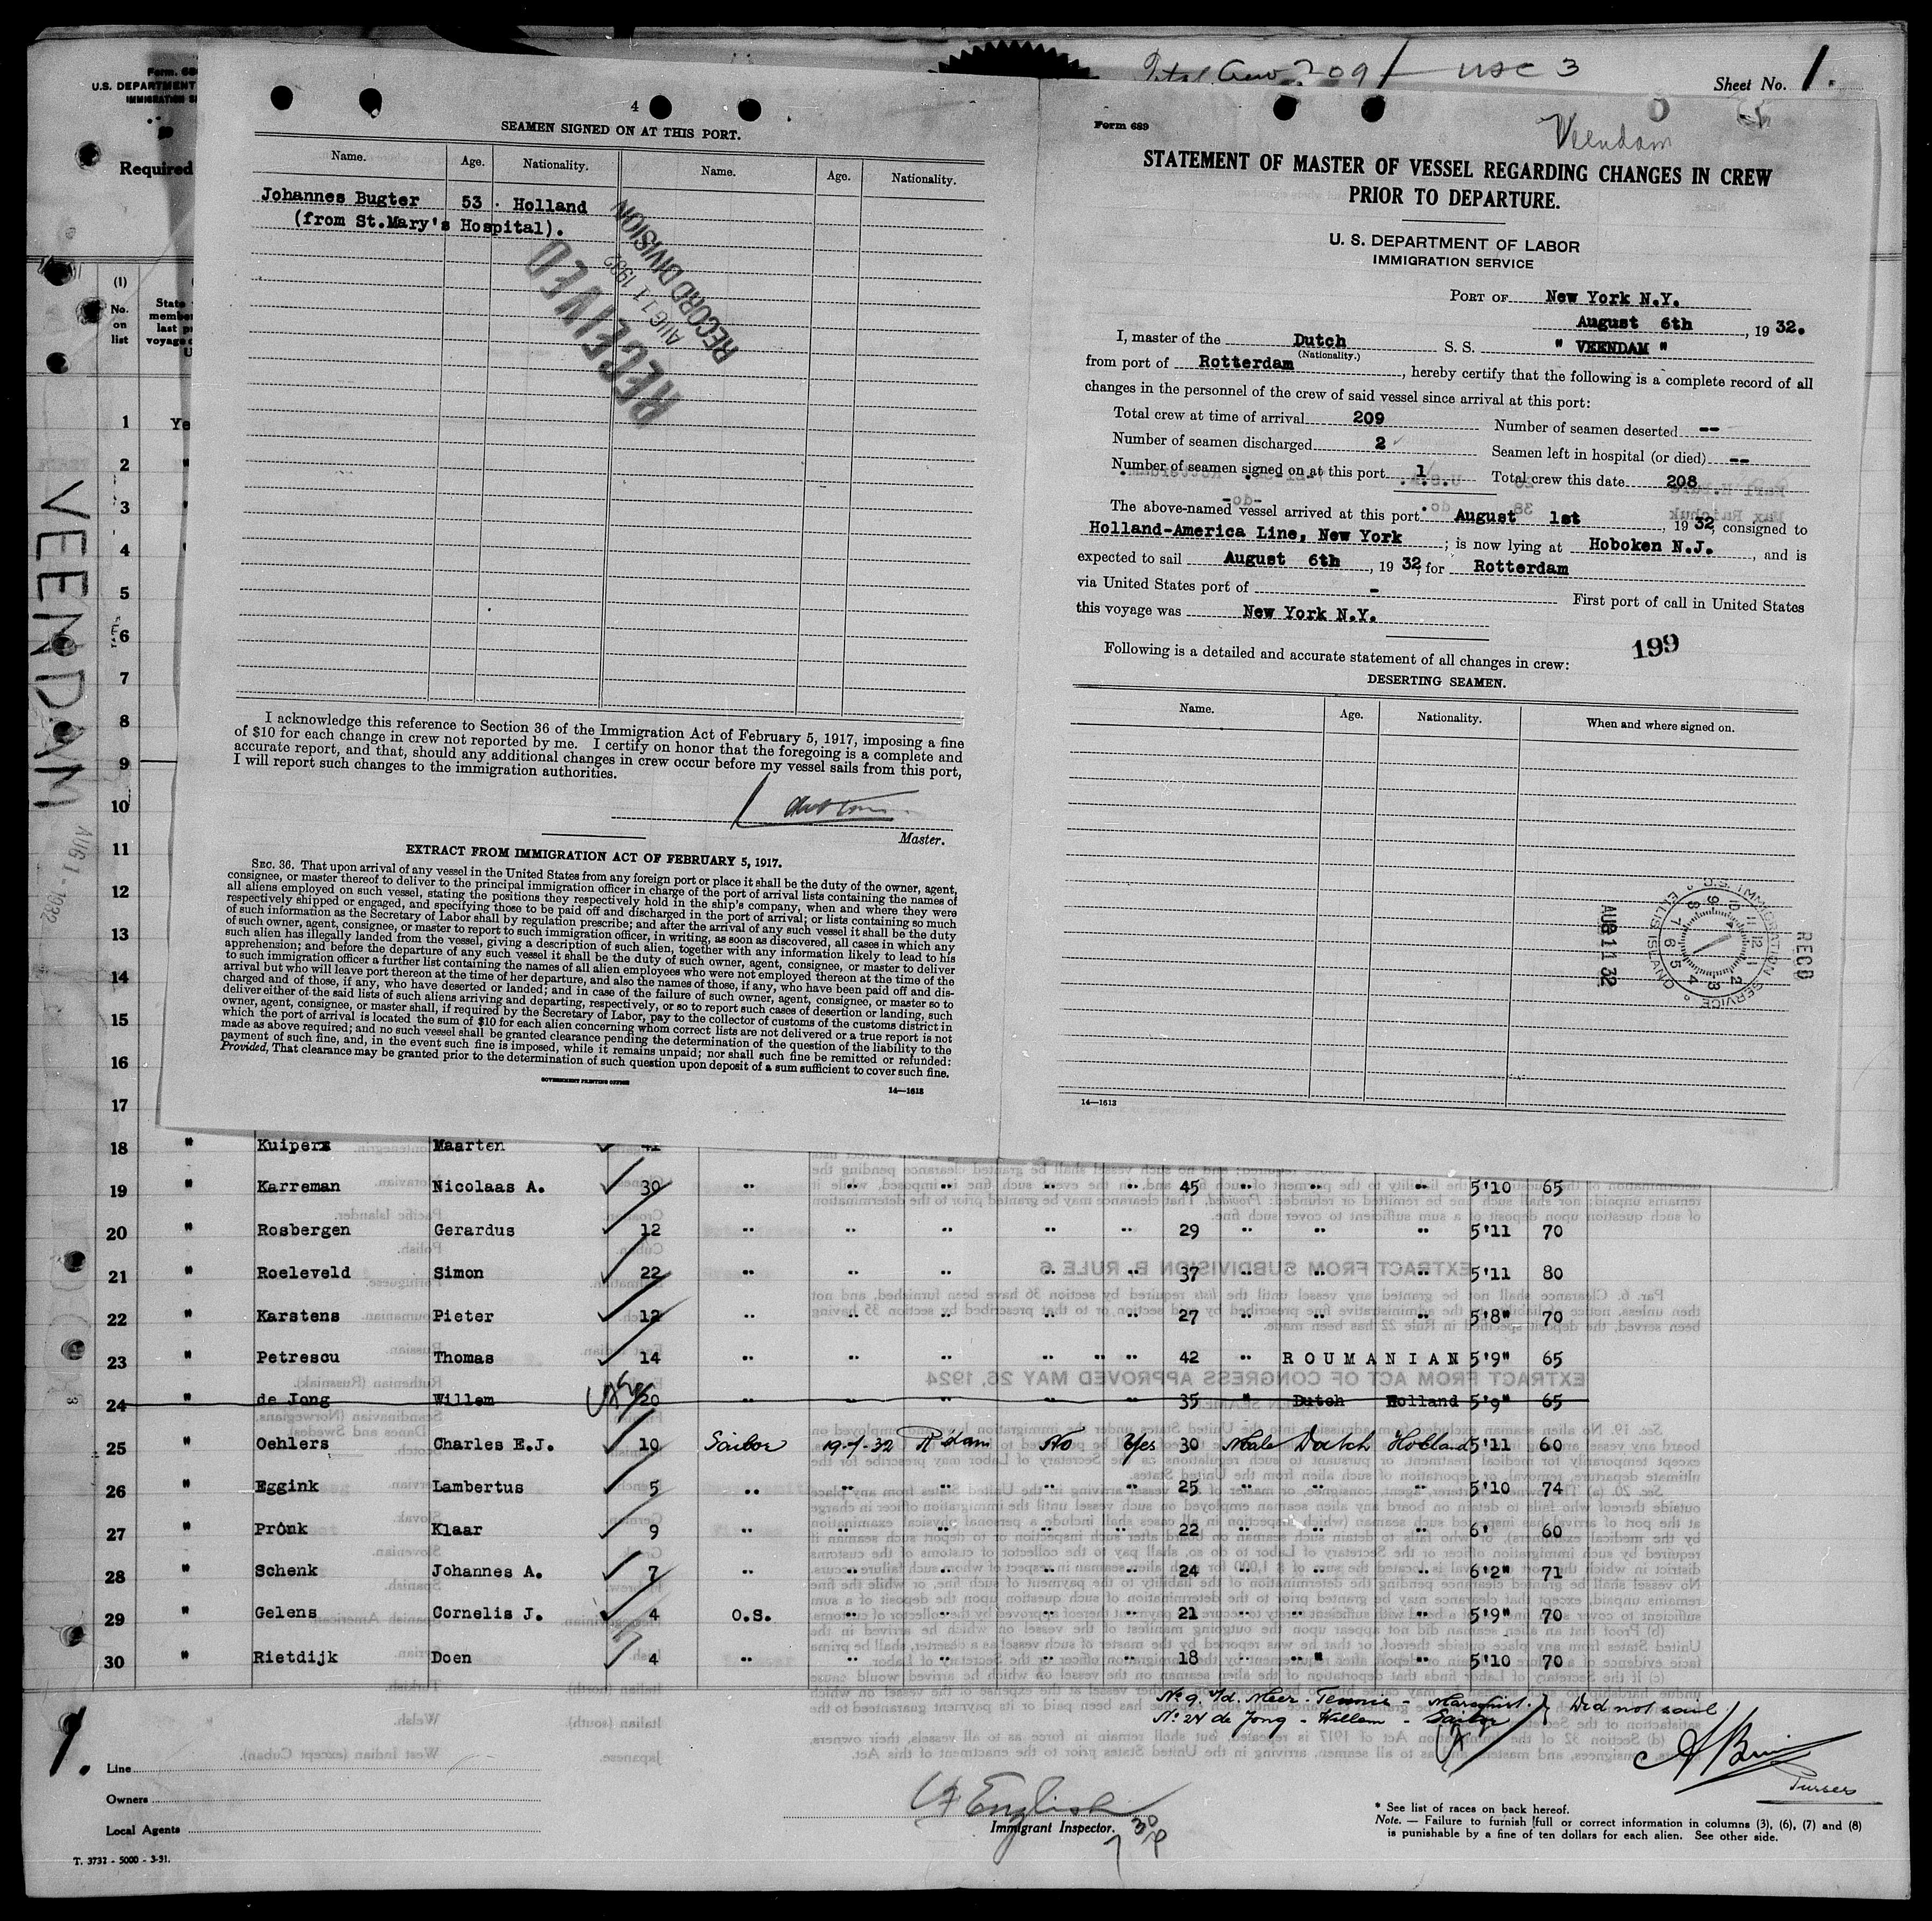 Total Crew 209 — USC 3
Sheet No. 1.
U.S. DEPARTMENT
Required
VEENDAM
AUG 1 - 1932
4
SEAMEN SIGNED ON AT THIS PORT.
Name. Age. Nationality. Name. Age. Nationality.
Johannes Bugter 53 Holland
(from St.Mary's Hospital).
RECEIVED
AUG 11 1932
RECORD DIVISION
I acknowledge this reference to Section 36 of the Immigration Act of February 5, 1917, imposing a fine
of $10 for each change in crew not reported by me. I certify on honor that the foregoing is a complete and
accurate report, and that, should any additional changes in crew occur before my vessel sails from this port,
I will report such changes to the immigration authorities.
Master.
EXTRACT FROM IMMIGRATION ACT OF FEBRUARY 5, 1917.
SEC. 36. That upon arrival of any vessel in the United States from any foreign port or place it shall be the duty of the owner, agent,
consignee, or master thereof to deliver to the principal immigration officer in charge of the port of arrival lists containing the names of
all aliens employed on such vessel, stating the positions they respectively hold in the ship's company, when and where they were
respectively shipped or engaged, and specifying those to be paid off and discharged in the port of arrival; or lists containing so much
of such information as the Secretary of Labor shall by regulation prescribe; and after the arrival of any such vessel it shall be the duty
of such owner, agent, consignee, or master to report to such immigration officer, in writing, as soon as discovered, all cases in which any
such alien has illegally landed from the vessel, giving a description of such alien, together with any information likely to lead to his
apprehension; and before the departure of any such vessel it shall be the duty of such owner, agent, consignee, or master to deliver
to such immigration officer a further list containing the names of all alien employees who were not employed thereon at the time of the
arrival but who will leave port thereon at the time of her departure, and also the names of those, if any, who have been paid off and dis-
charged and of those, if any, who have deserted or landed; and in case of the failure of such owner, agent, consignee, or master so to
deliver either of the said lists of such aliens arriving and departing, respectively, or so to report such cases of desertion or landing, such
owner, agent, consignee, or master shall, if required by the Secretary of Labor, pay to the collector of customs of the customs district in
which the port of arrival is located the sum of $10 for each alien concerning whom correct lists are not delivered or a true report is not
made as above required; and no such vessel shall be granted clearance pending the determination of the question of the liability to the
payment of such fine, and, in the event such fine is imposed, while it remains unpaid; nor shall such fine be remitted or refunded:
Provided, That clearance may be granted prior to the determination of such question upon deposit of a sum sufficient to cover such fine.
GOVERNMENT PRINTING OFFICE
14—1613
Form 689
Veendam
STATEMENT OF MASTER OF VESSEL REGARDING CHANGES IN CREW
PRIOR TO DEPARTURE.
U. S. DEPARTMENT OF LABOR
IMMIGRATION SERVICE
PORT OF New York N.Y.
August 6th, 1932.
I, master of the Dutch S. S. " VEENDAM "
(Nationality.)
from port of Rotterdam, hereby certify that the following is a complete record of all
changes in the personnel of the crew of said vessel since arrival at this port:
Total crew at time of arrival 209 Number of seamen deserted --
Number of seamen discharged 2 Seamen left in hospital (or died) --
Number of seamen signed on at this port 1 Total crew this date 208
The above-named vessel arrived at this port August 1st, 1932, consigned to
Holland-America Line, New York; is now lying at Hoboken N.J., and is
expected to sail August 6th, 1932, for Rotterdam
via United States port of - First port of call in United States
this voyage was New York N.Y.
199
Following is a detailed and accurate statement of all changes in crew:
DESERTING SEAMEN.
Name. Age. Nationality. When and where signed on.
RECD
U.S. IMMIGRATION SERVICE ELLIS ISLAND
AUG 11 32
14—1613
(1)
No. on list
1 Ye
2 "
3 "
4
5
6
7
8
9
10
11
12
13
14
15
16
17
18 " Kuipers Maarten 41
19 " Karreman Nicolaas A. 30 " " " " " 45 " " " 5'10 65
20 " Rosbergen Gerardus 12 " " " " " 29 " " " 5'11 70
21 " Roeleveld Simon 22 " " " " " 37 " " " 5'11 80
22 " Karstens Pieter 12 " " " " " 27 " " " 5'8" 70
23 " Petrescu Thomas 14 " " " " " " 42 " ROUMANIAN 5'9" 65
24 " de Jong Willem 20 " " " " " 35 " Dutch Holland 5'9" 65
25 " Oehlers Charles E.J. 10 Sailor 19-7-32 R'dam No Yes 30 Male Dutch Holland 5'11 60
26 " Eggink Lambertus 5 " " " " " 25 " " " 5'10 74
27 " Pronk Klaar 9 " " " " " 22 " " " 6' 60
28 " Schenk Johannes A. 7 " " " " " 24 " " " 6'2" 71
29 " Gelens Cornelis J. 4 O.S. " " " " 21 " " " 5'9" 70
30 " Rietdijk Doen 4 " " " " " 18 " " " 5'10 70
No 9. v/d. Meer - Teunis - Marconist. } Did not sail
No 24 de Jong - Willem - Sailor
Pursers
1.
Line
Owners
Local Agents
T. 3732 - 5000 - 3-31.
English
Immigrant Inspector.
* See list of races on back hereof.
Note. — Failure to furnish full or correct information in columns (3), (6), (7) and (8)
is punishable by a fine of ten dollars for each alien. See other side.